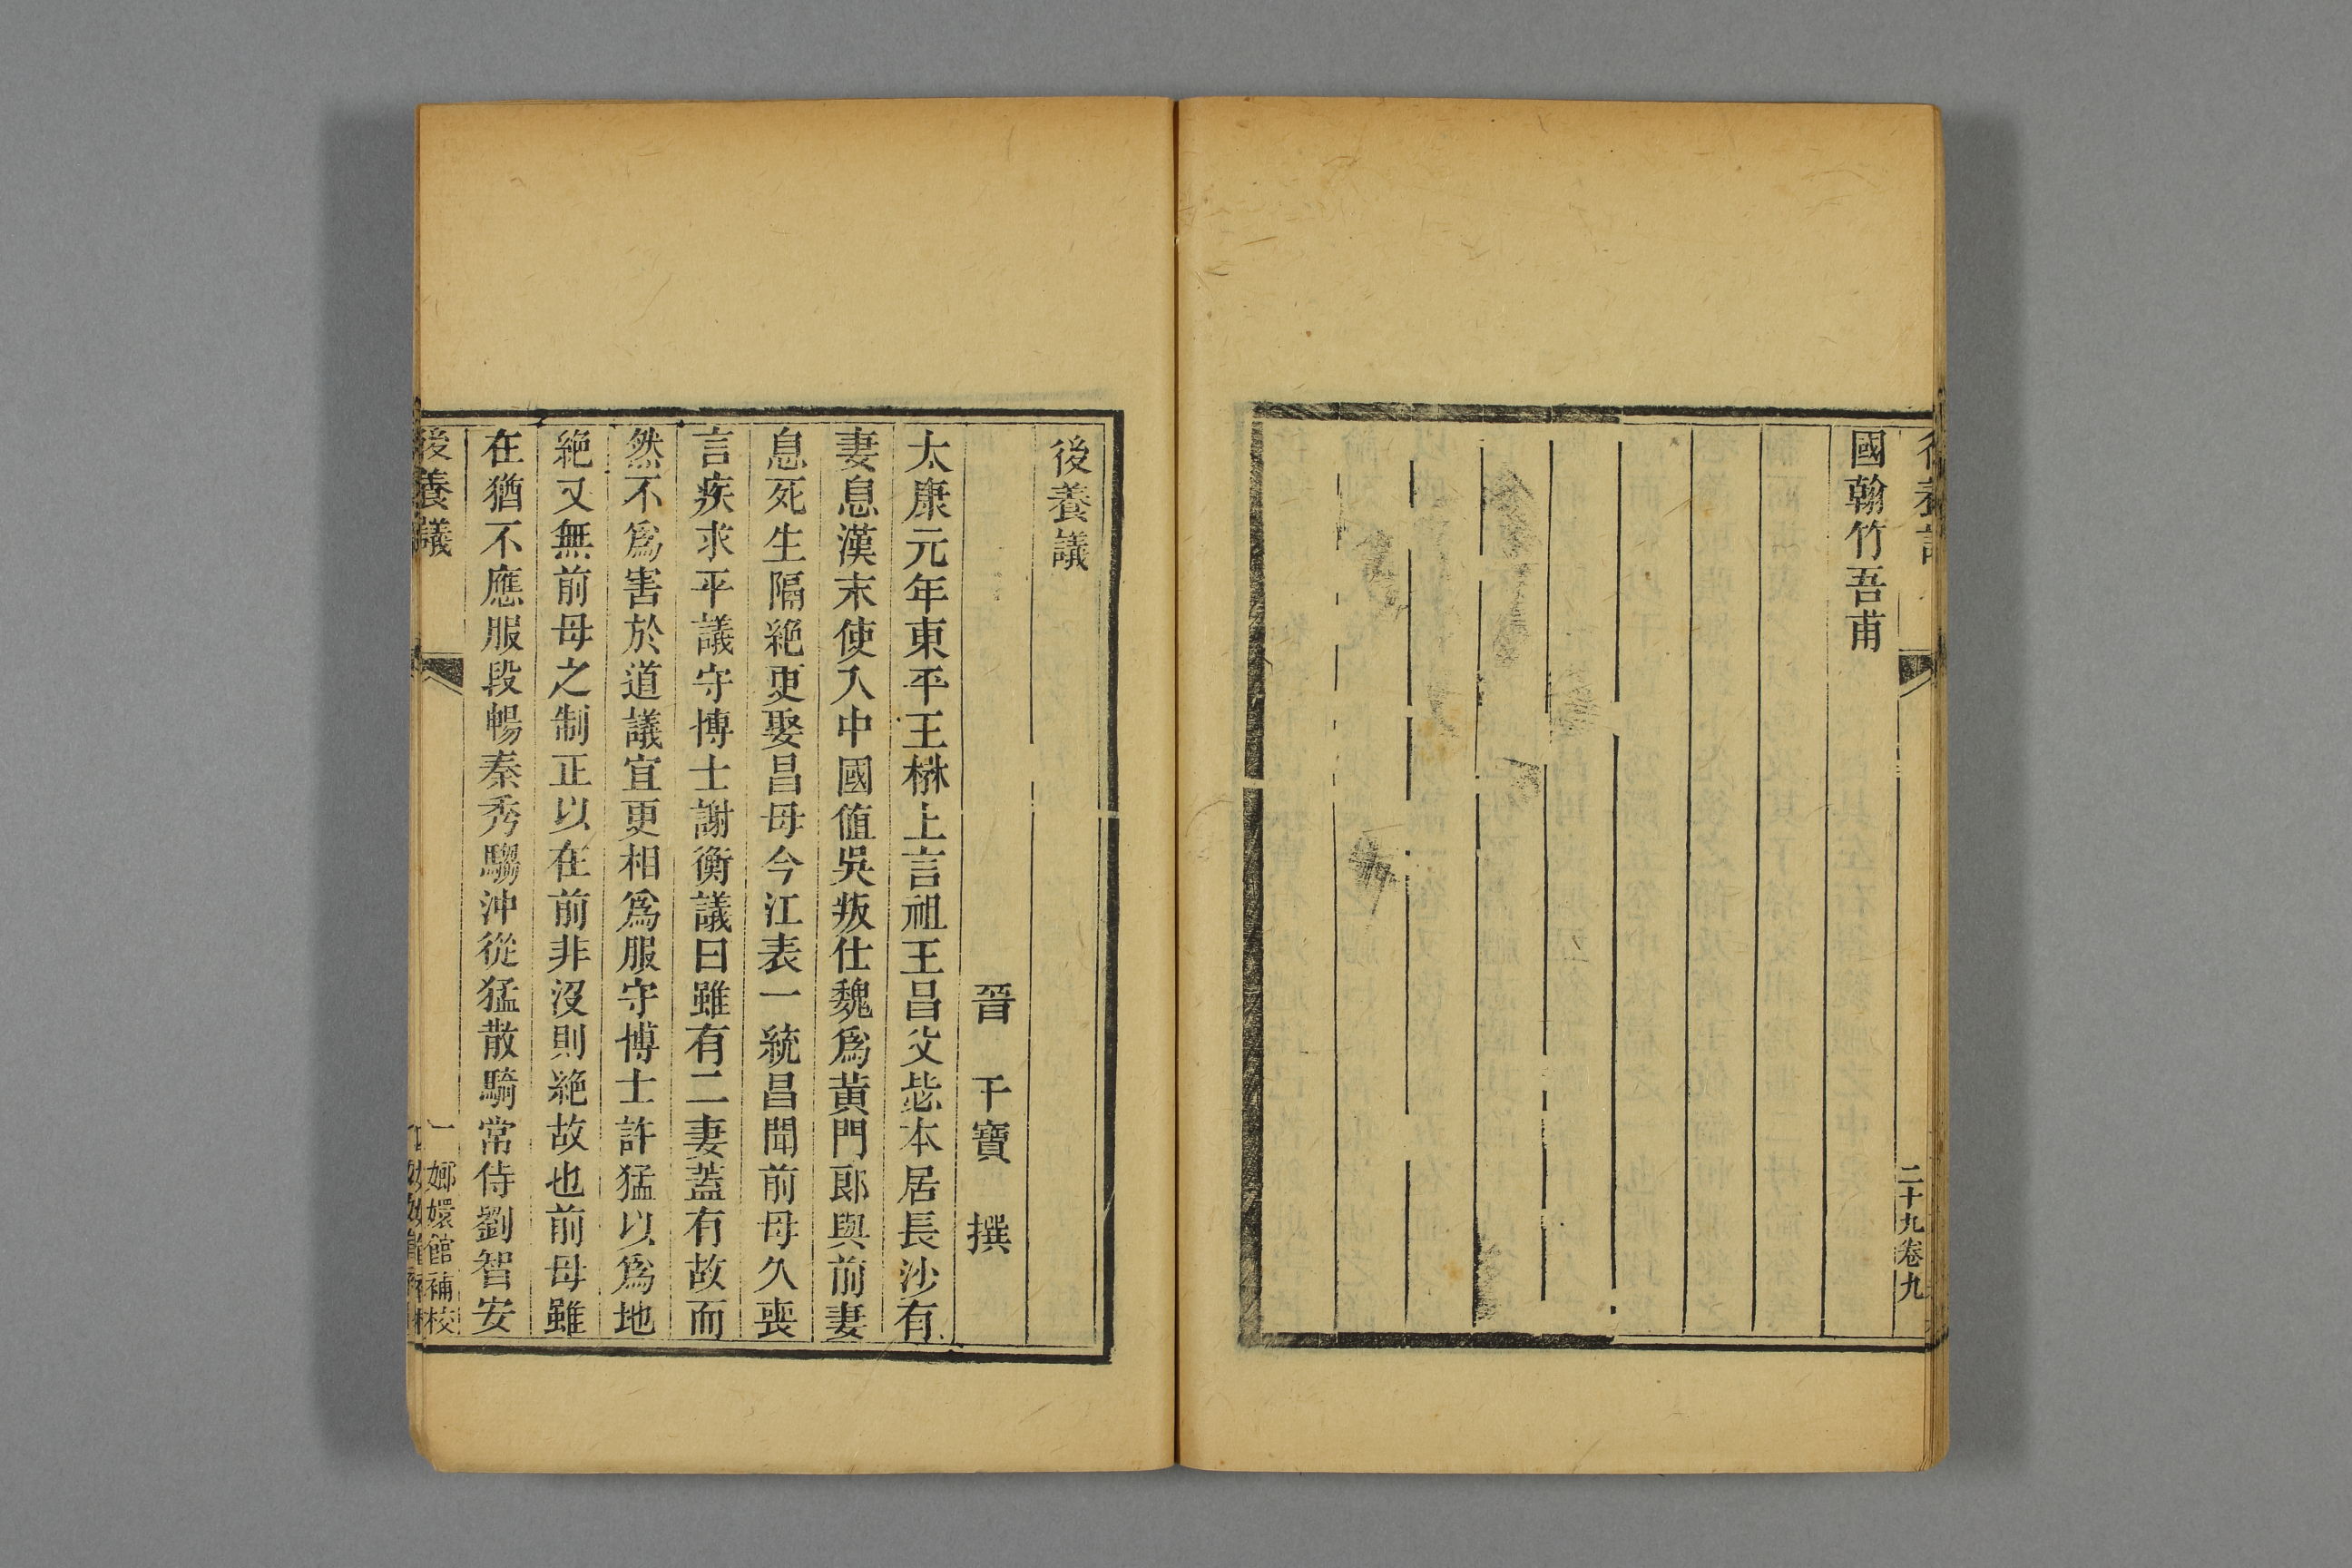 國翰竹吾甫
二十九卷九
後養議
晉　干寶　撰
太康元年東平王楙上言祖王昌父毖本居長沙有
妻息漢末使入中國值吳叛仕魏爲黃門郎與前妻
息死生隔絕更娶昌母今江表一統昌聞前母久喪
言疾求平議守博士謝衡議曰雖有二妻蓋有故而
然不爲害於道議宜更相爲服守博士許猛以爲地
絕又無前母之制正以在前非沒則絕故也前母雖
在猶不應服段暢秦秀騶沖從猛散騎常侍劉智安
後養議
一
嫏嬛館補校